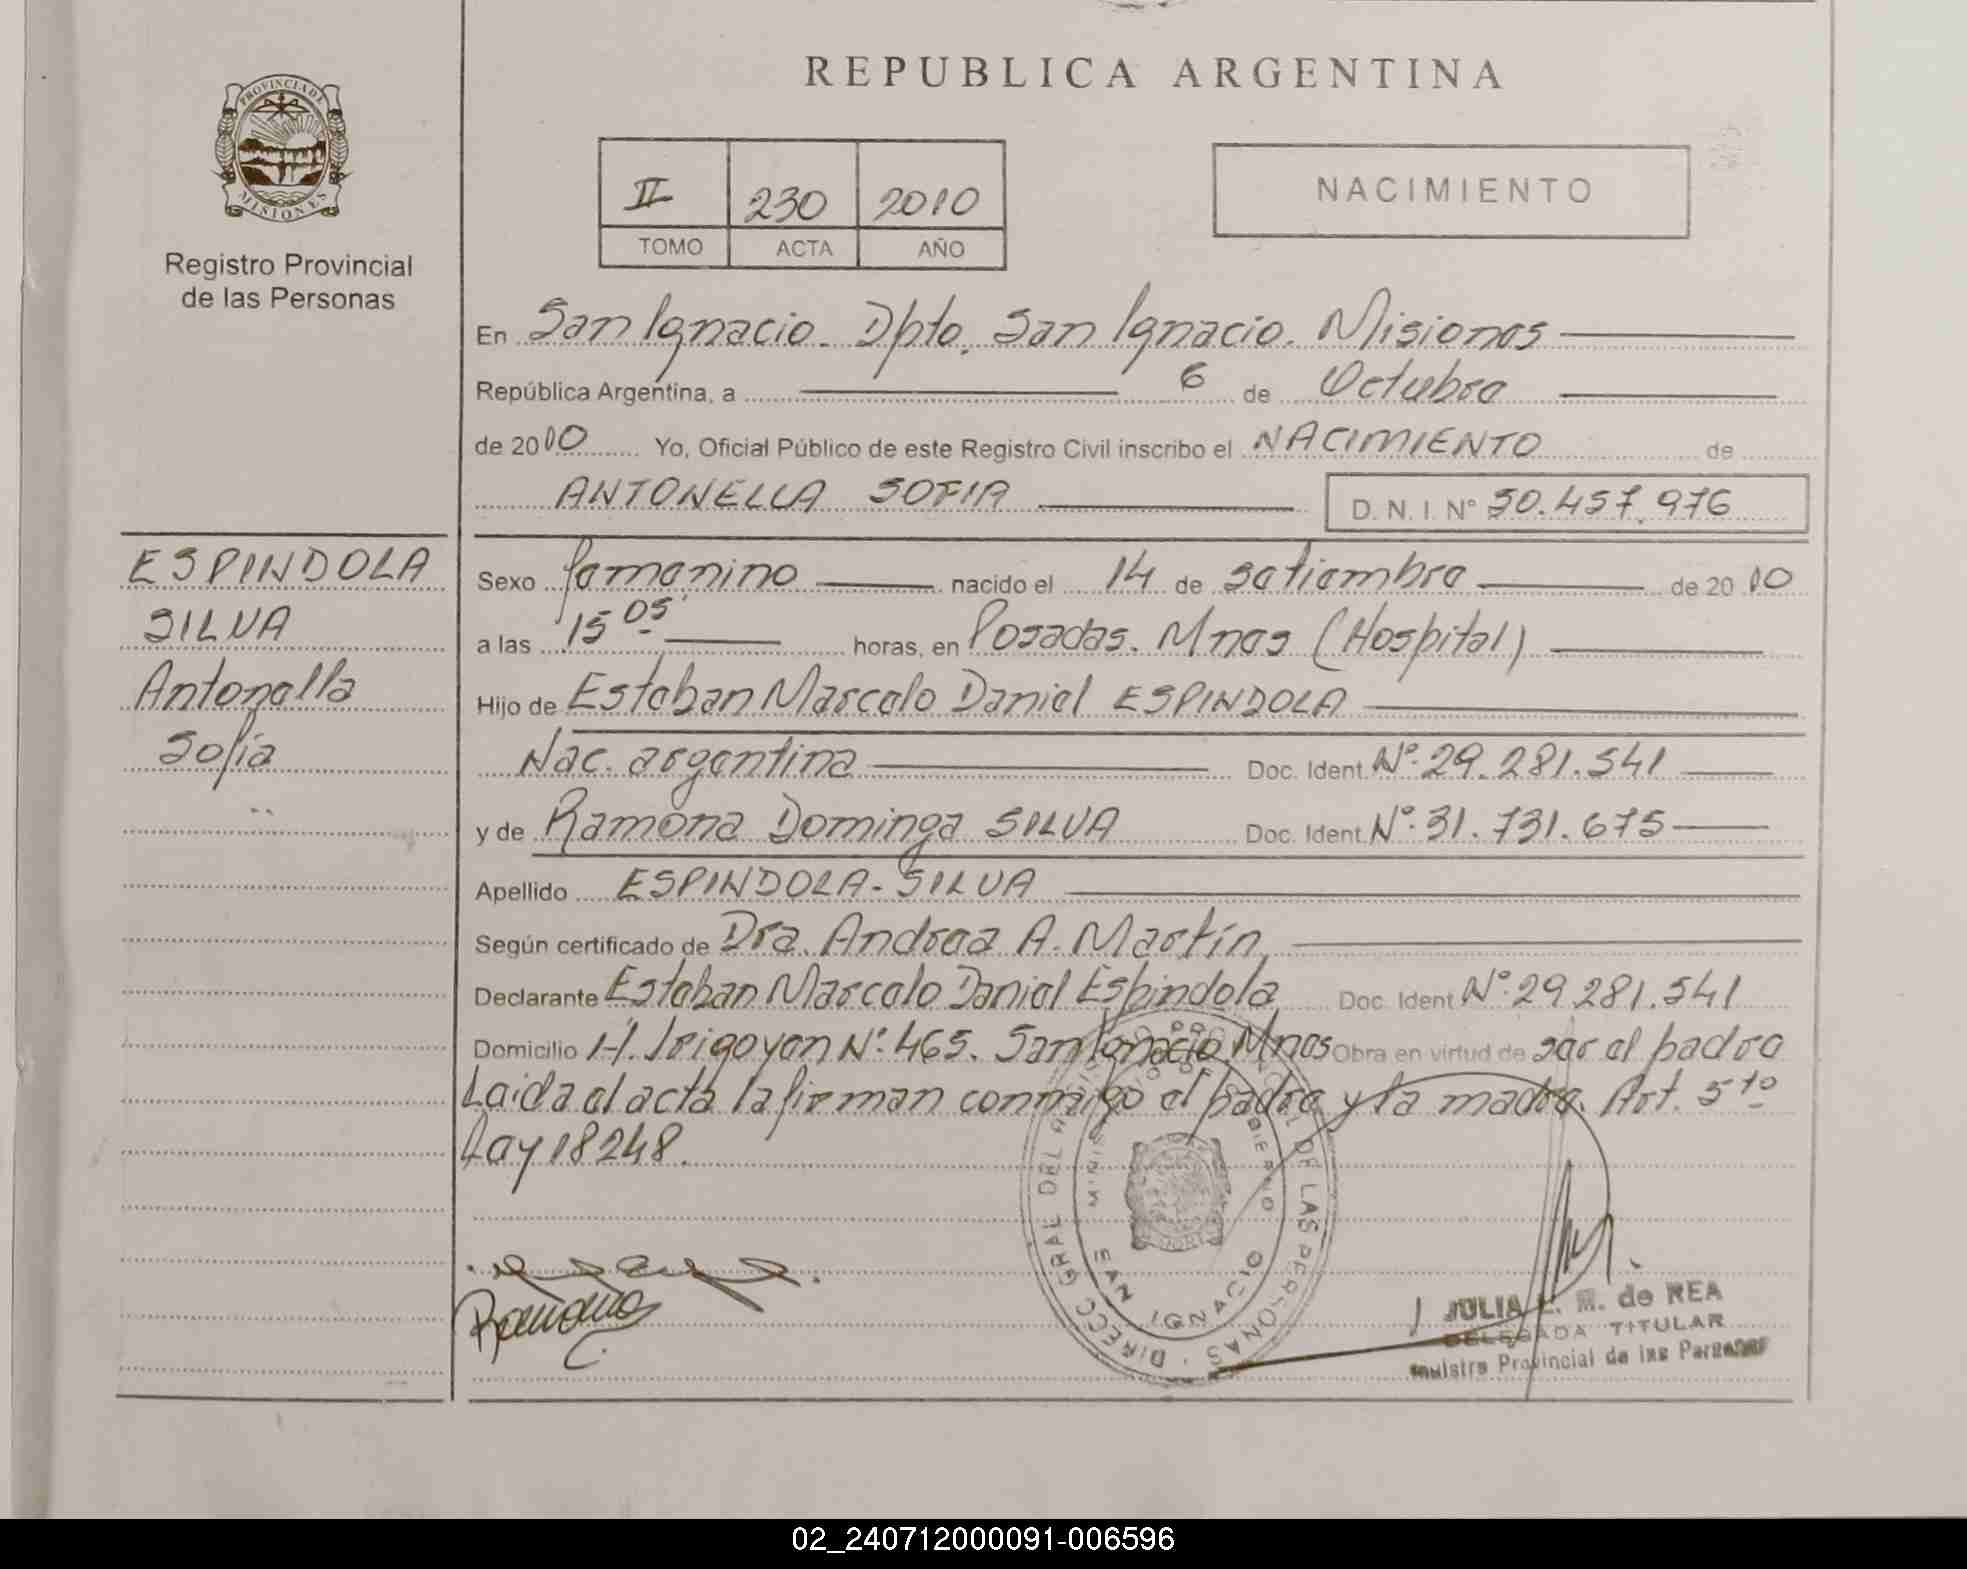 REPUBLICA ARGENTINA
PROVINCIA DE
MISIONES
Registro Provincial
de las Personas
II 230 2010
TOMO ACTA AÑO
NACIMIENTO
En San Ignacio. Dpto. San Ignacio. Misiones
República Argentina, a 6 de Octubre
de 2010 Yo, Oficial Público de este Registro Civil inscribo el NACIMIENTO de
ANTONELLA SOFIA D. N. I. N° 50.457.976
ESPINDOLA
SILVA
Antonella
Sofía
Sexo femenino nacido el 14 de setiembre de 2010
a las 15 05' horas, en Posadas. Mnes (Hospital)
Hijo de Esteban Marcelo Daniel ESPINDOLA
Nac. argentina Doc. Ident. N°. 29.281.541
y de Ramona Dominga SILVA Doc. Ident. N°. 31.731.675
Apellido ESPINDOLA-SILVA
Según certificado de Dra. Andrea A. Martín,
Declarante Esteban Marcelo Daniel Espindola Doc. Ident. N°. 29.281.541
Domicilio H. Irigoyen N°. 465. San Ignacio Mnes Obra en virtud de ser el padre
Leida el acta la firman conmigo el padre y la madre. Art. 5to
Ley 18248.
Ramona
DIRECC GRAL DEL DE LAS PERSONAS
SAN IGNACIO
JULIA M. de REA
DELEGADA TITULAR
Provincial de las Personas
02_240712000091-006596